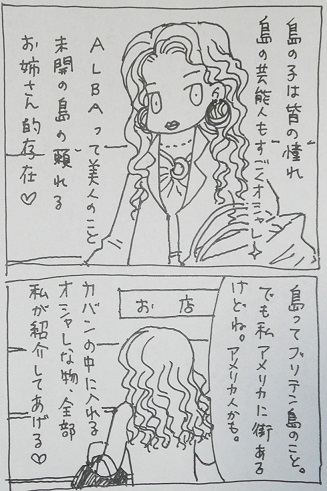 島の子は皆の憧れ
島の芸能人もすごくオシャレ
ALBAって美人のこと
未開の島の頼れる
お姉さん的存在♡
島ってブリテン島のこと。
でも私アメリカに街ある
けどね。アメリカ人かも。
お店
カバンの中に入れる
オシャレな物、全部
私が紹介してあげる♡